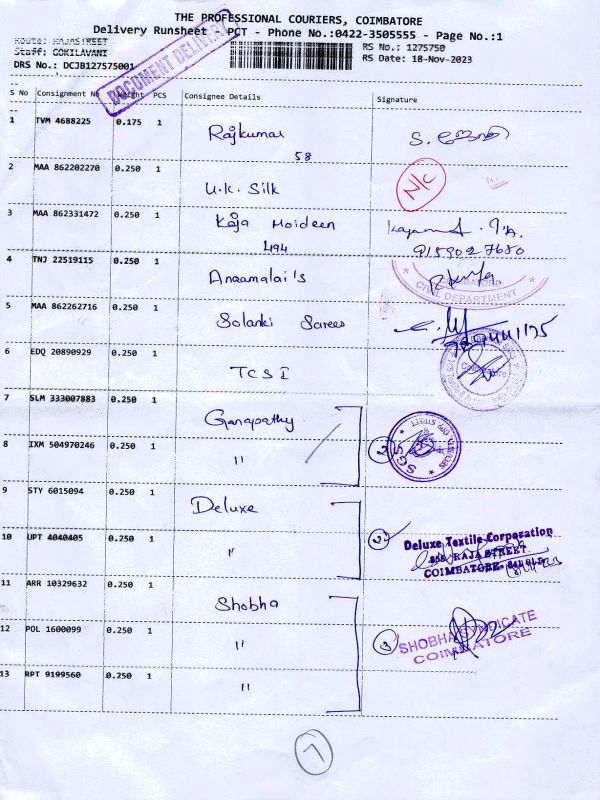 THE PROFESSIONAL COURIERS, COIMBATORE
Delivery Runsheet - PCT - Phone No.:0422-3505555 - Page No.:1
Route: RAJASTREET
RS No.: 1275750
Staff: GOKILAVANI
RS Date: 18-Nov-2023
DRS No.: DCJB127575001
DOCUMENT DELIVERY
S No Consignment No Weight PCS Consignee Details Signature
1 TVM 4688225 0.175 1 Rajkumar
58
2 MAA 862202270 0.250 1 U.K. Silk N/C
3 MAA 862331472 0.250 1 Kaja Moideen
494 9159027680
4 TNJ 22519115 0.250 1 Annamalai's
COIMBATORE
CIVIL DEPARTMENT
5 MAA 862262716 0.250 1 Solanki Sarees
6 EDQ 20890929 0.250 1 TCSI
7 SLM 333007883 0.250 1 Ganapathy
8 IXM 504970246 0.250 1 " 2 SGS
9 STY 6015094 0.250 1 Deluxe
10 UPT 4040405 0.250 1 " 2 Deluxe Textile Corporation
RAJA STREET
COIMBATORE
11 ARR 10329632 0.250 1 Shobha
12 POL 1600099 0.250 1 " 3 SHOBHA SYNDICATE
COIMBATORE
13 RPT 9199560 0.250 1 "
7